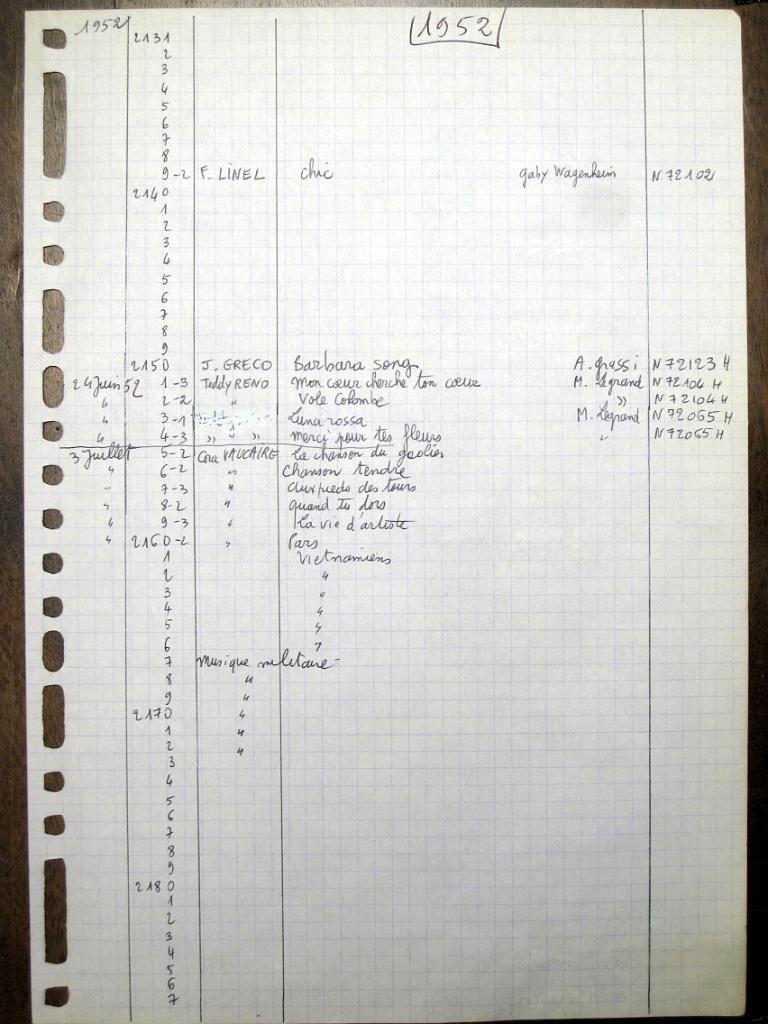 1952 [1952]
2131
2
3
4
5
6
7
8
9-2 F. LINEL chic Gaby Wagenheim N 72102
2140
1
2
3
4
5
6
7
8
9
2150 J. GRECO Barbara song A. Grassi N 72123 H
24 Juin 52 1-3 Teddy RENO Mon cœur cherche ton cœur M. Legrand N 72104 H
" 2-2 " Vole Colombe " N 72104 H
" 3-1 " Luna rossa M. Legrand N 72065 H
" 4-3 " " " merci pour tes fleurs " N 72065 H
3 Juillet 5-2 Cora VAUCAIRE la chanson du geolier
" 6-2 " Chanson tendre
" 7-3 " aux pieds des tours
" 8-2 " quand tu dors
" 9-3 " la vie d'artiste
" 2160-2 " Pars
1 Vietnamiens
2 "
3 "
4 "
5 "
6 "
7 musique militaire
8 "
9 "
2170 "
1 "
2 "
3
4
5
6
7
8
9
2180
1
2
3
4
5
6
7